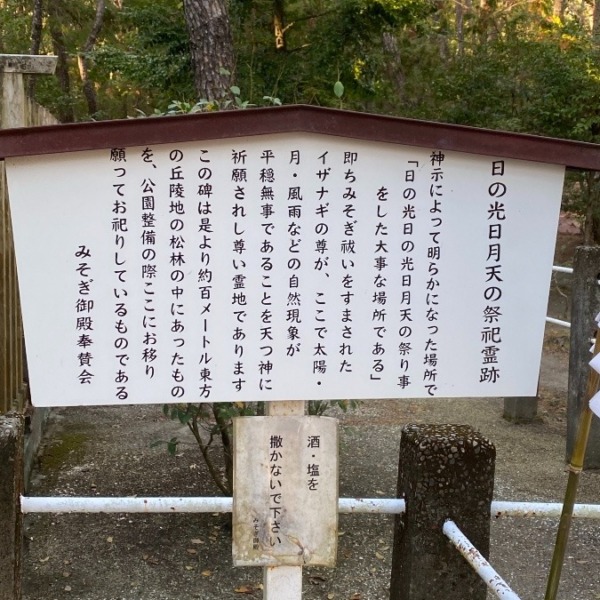 日の光日月天の祭祀霊跡
神示によって明らかになった場所で
「日の光日の光日月天の祭り事
をした大事な場所である」
即ちみそぎ祓いをすまされた
イザナギの尊が、ここで太陽・
月・風雨などの自然現象が
平穏無事であることを天つ神に
祈願されし尊い霊地であります
この碑は是より約百メートル東方
の丘陵地の松林の中にあったもの
を、公園整備の際ここにお移り
願ってお祀りしているものである
みそぎ御殿奉賛会
酒・塩を
撒かないで下さい
みそぎ御殿